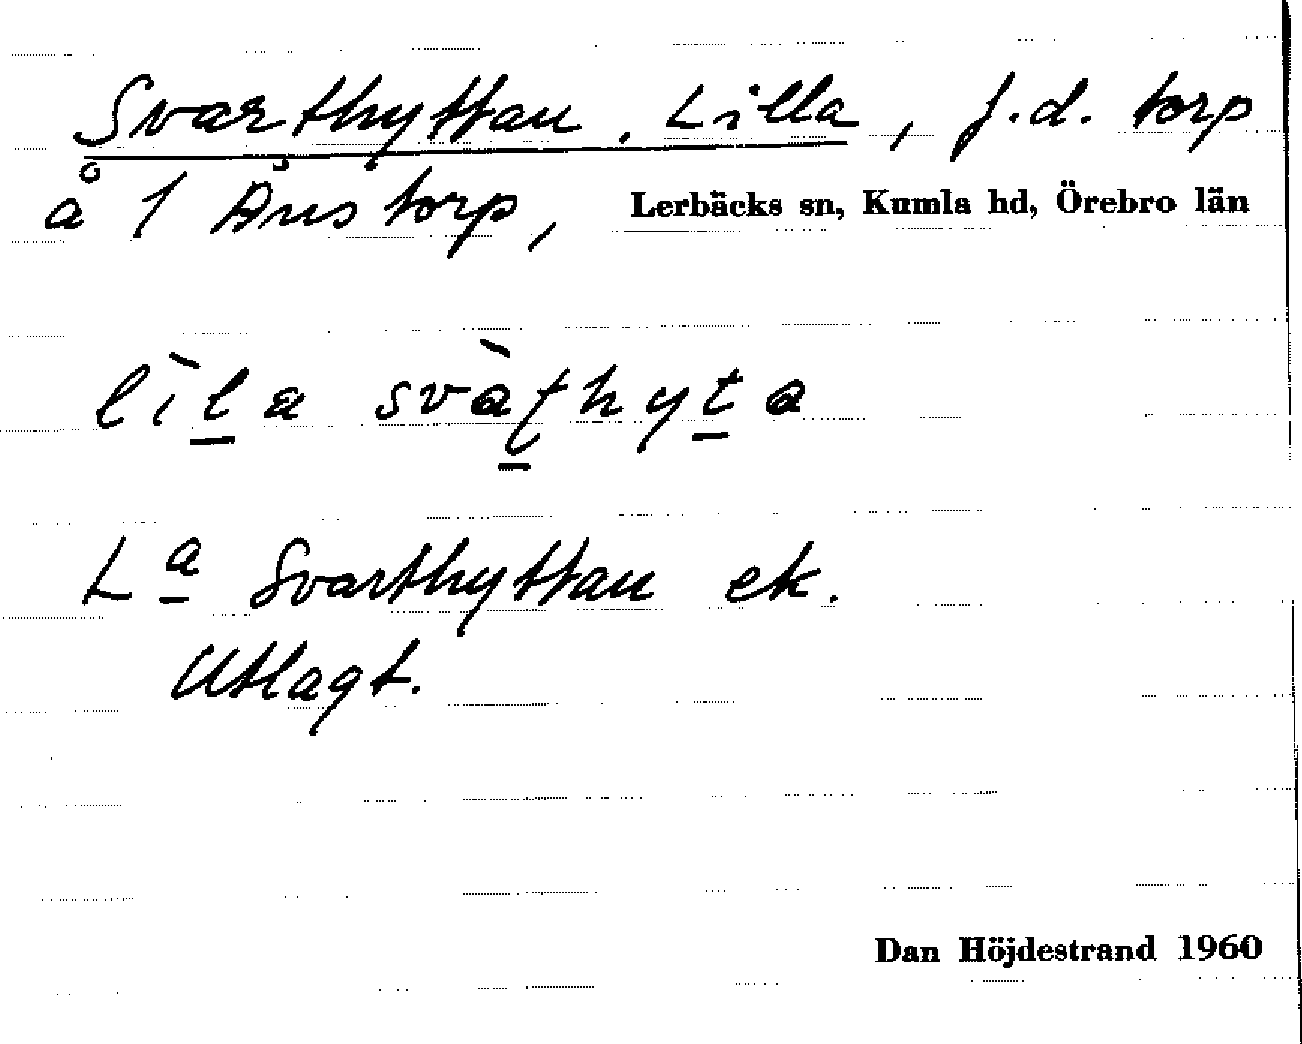 Svarthyttan, Lilla, f.d. torp
å 1 Ånstorp, Lerbäcks sn, Kumla hd, Örebro län
lìl̲a svàt̲hyt̲a
Lª Svarthyttan ek.
Utlagt.
Dan Höjdestrand 1960